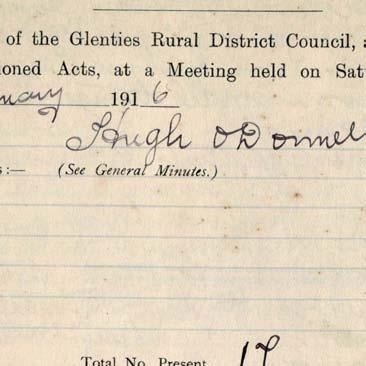 of the Glenties Rural District Council, a
ioned Acts, at a Meeting held on Sat
nuary 1916
Hugh O'Donnel
s:— (See General Minutes.)
Total No. Present 17